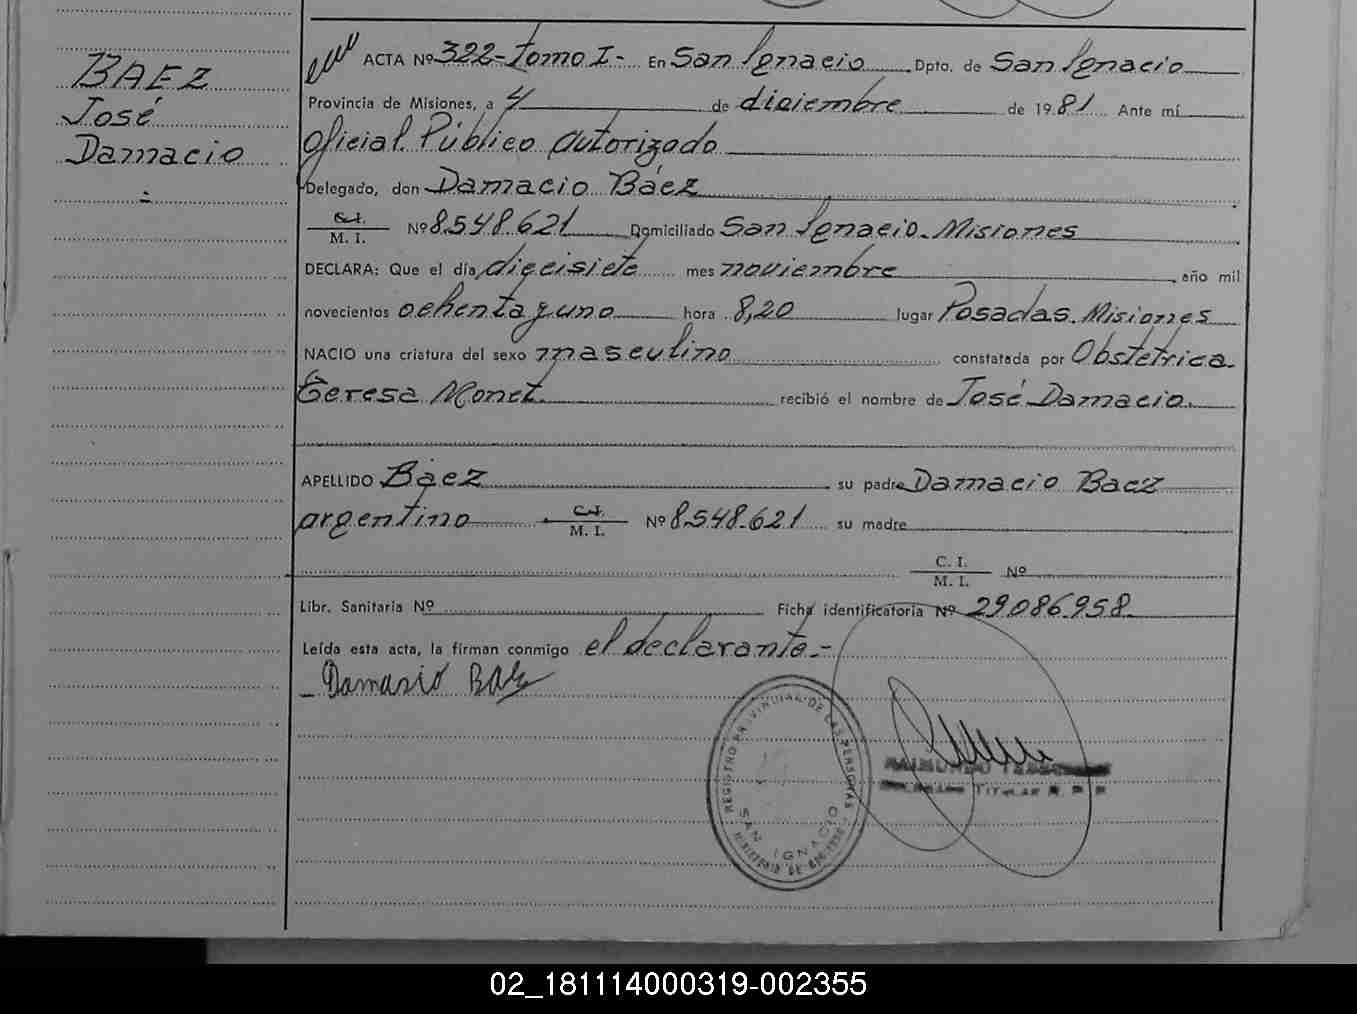 BAEZ
José
Damacio
ACTA Nº 322-Tomo I- En San Ignacio Dpto. de San Ignacio
Provincia de Misiones, a 4 de diciembre de 1981 Ante mí
Oficial Público Autorizado
Delegado, don Damacio Báez
C.I.
M. I. Nº 8.548.621 Domiciliado San Ignacio. Misiones
DECLARA: Que el día diecisiete mes noviembre año mil
novecientos ochenta y uno hora 8,20 lugar Posadas. Misiones
NACIO una criatura del sexo masculino constatada por Obstetrica
Teresa Monet. recibió el nombre de José Damacio.
APELLIDO Báez su padre Damacio Baez
argentino C.I.
M. I. Nº 8.548.621 su madre
C. I.
M. I. Nº
Libr. Sanitaria Nº Ficha identificatoria Nº 29.086.958
Leída esta acta, la firman conmigo el declarante.-
Damasio BAEz
REGISTRO PROVINCIAL DE LAS PERSONAS
SAN IGNACIO
MINISTERIO DE GOBIERNO
TITULAR R. P. P.
02_181114000319-002355